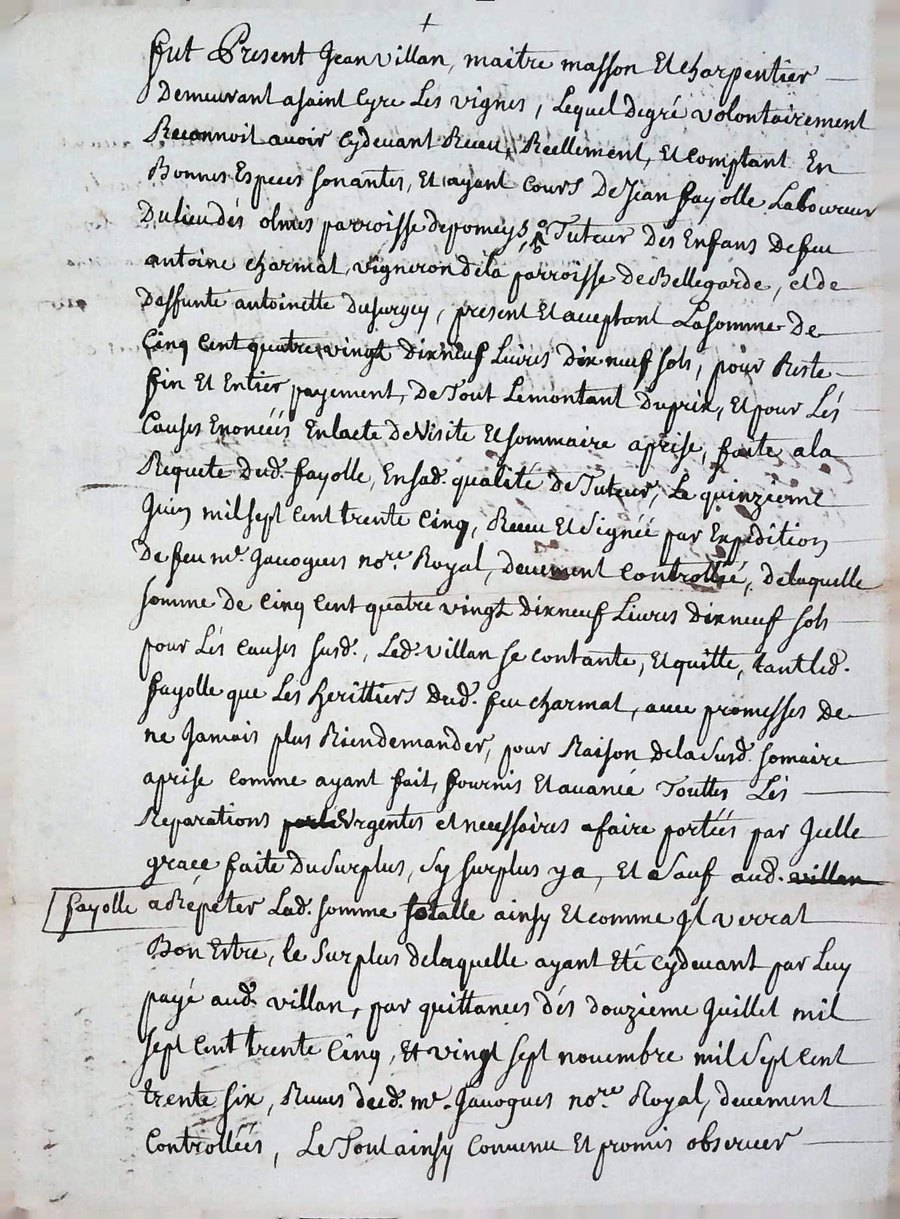 +
fut Present Jean Villan, maitre masson Et charpentier
Demeurant a saint Cyre Les vignes, Lequel de gré volontairement
Reconnoit avoir Cydevant Receu, Reellement, Et Comptant En
Bonnes Especes sonantes, Et ayant Cours De Jean fayolle Laboureur
Du lieu dés olmes parroisse de pomeys, Tuteur Des Enfans De feu
antoine Charmat, vigneron de la parroisse de Bellegarde, et de
Deffunte antoinette Dusurgey, present Et acceptant La somme De
Cinq Cent quatre vingt dix neuf Livres Dix neuf sols, pour Reste
fin Et Entier payement, de Tout Le montant Du prix, Et pour Lés
Causes Enonceés En lacte de visite Et sommaire aprise, faite a la
Requete dud. fayolle, En sad. qualité de Tuteur, Le quinzieme
Juin mil sept Cent trente Cinq, Receu Et Signée par Expedition
De feu me. Gauogues nore. Royal, deuement Controllée, de laquelle
somme de Cinq Cent quatre vingt dix neuf Livres dix neuf sols
pour Lés Causes susd., Led. villan se contante, Et quitte, tant led.
fayolle que Les Herittiers dud. feu charmat, avec promesses de
ne Jamais plus Rien demander, pour Raison de la susd. somaire
aprise Comme ayant fait, fournis Et avancé Touttes Lés
Reparations Urgentes et necessaires a faire portées par Icelle
grace faite Du surplus, sy surplus y a, Et Sauf aud. villan
fayolle a Répéter Lad. somme totalle ainsy Et comme Il verrat
Bon Estre, le surplus de laquelle ayant Eté Cydevant par Luy
payé aud. villan, par quittances dés douzieme Juillet mil
sept Cent trente Cinq, Et vingt sept novembre mil Sept Cent
trente six, Receues dud. me. Gauogues nore. Royal, deuement
Controlleés, Le Tout ainsy Convenu Et promis observer